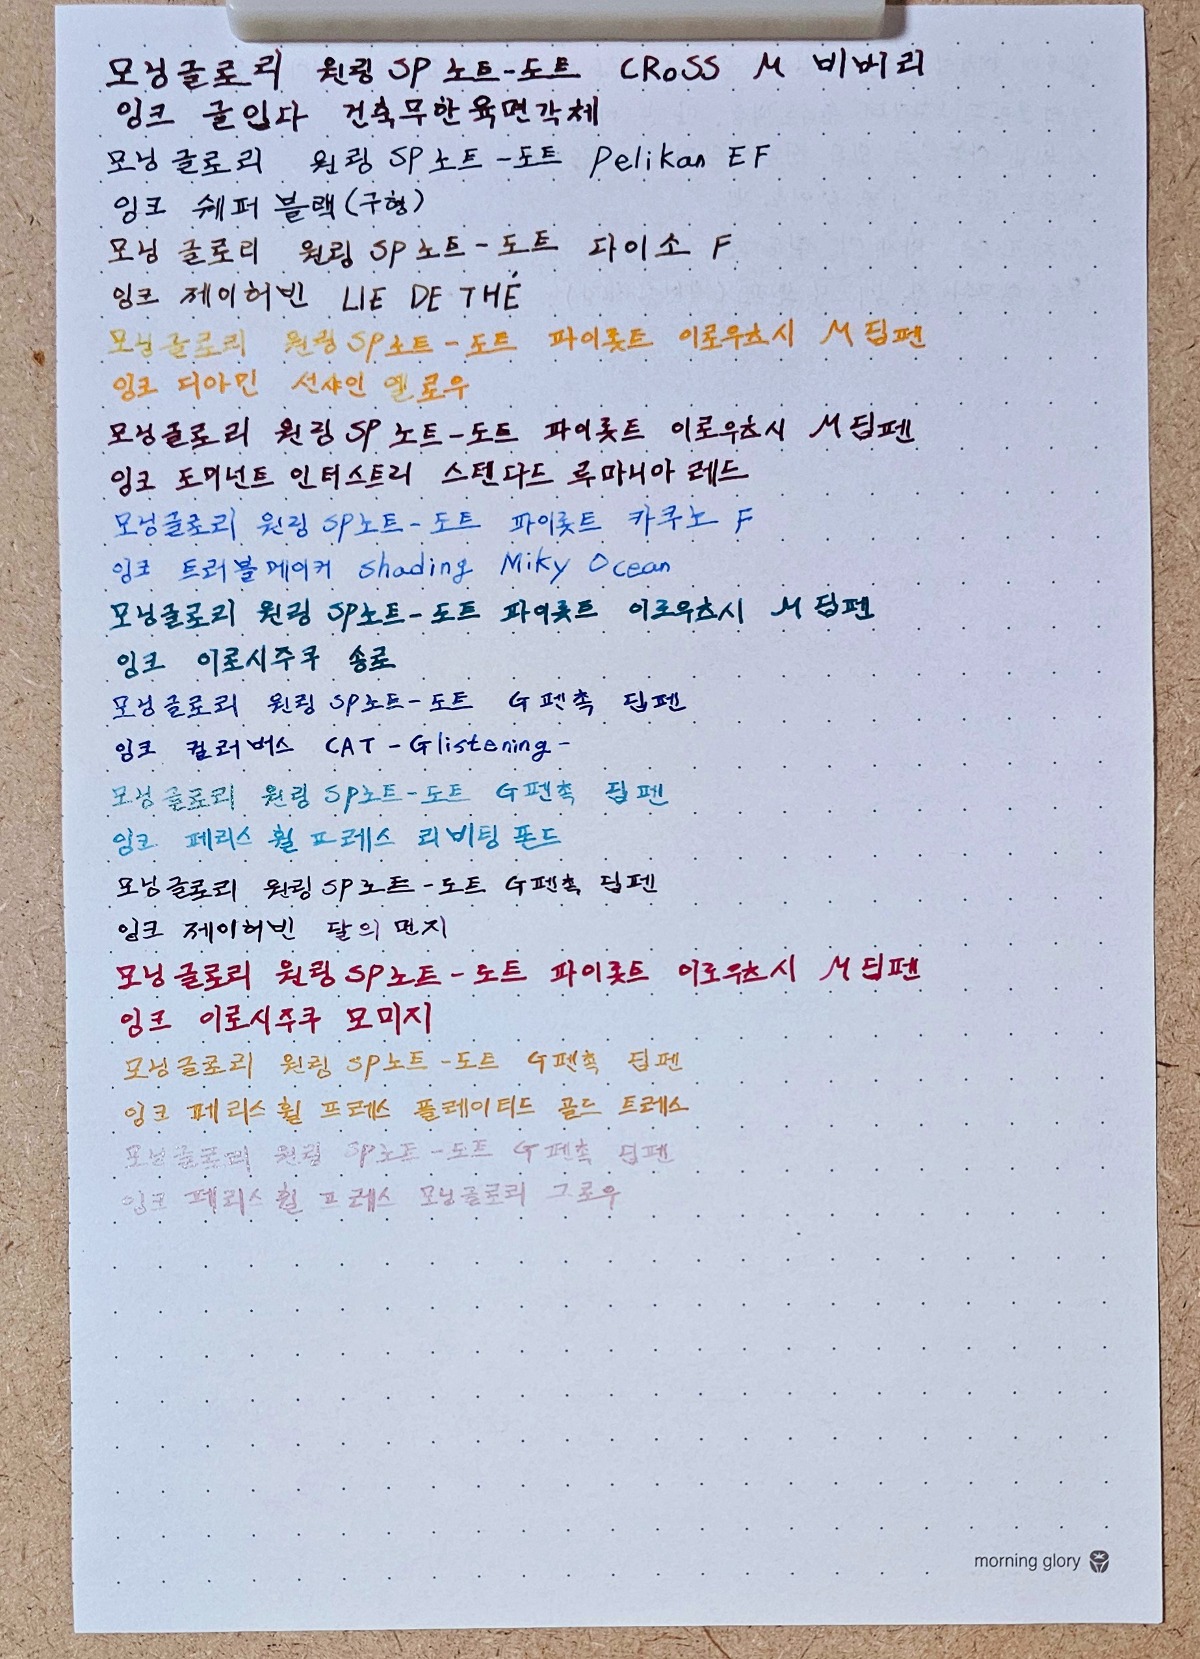 모닝글로리 원링 SP 노트-도트 CROSS M 비버리
잉크 글입다 건축무한육면각체
모닝글로리 원링 SP노트-도트 Pelikan EF
잉크 쉐퍼 블랙(구형)
모닝글로리 원링 SP노트-도트 다이소 F
잉크 제이허빈 LIE DE THÉ
모닝글로리 원링 SP노트-도트 파이롯트 이로우츠시 M 딥펜
잉크 디아민 선샤인 옐로우
모닝글로리 원링 SP 노트-도트 파이롯트 이로우츠시 M 딥펜
잉크 도미넌트 인더스트리 스텐다드 루마니아 레드
모닝글로리 원링 SP노트-도트 파이롯트 카쿠노 F
잉크 트러블메이커 shading Miky Ocean
모닝글로리 원링 SP노트-도트 파이롯트 이로우츠시 M 딥펜
잉크 이로시주쿠 송로
모닝글로리 원링 SP노트-도트 G펜촉 딥펜
잉크 컬러버스 CAT -Glistening-
모닝글로리 원링 SP노트-도트 G펜촉 딥펜
잉크 페리스 휠 프레스 리비팅 폰드
모닝글로리 원링 SP노트-도트 G펜촉 딥펜
잉크 제이허빈 달의 먼지
모닝글로리 원링 SP노트-도트 파이롯트 이로우츠시 M 딥펜
잉크 이로시주쿠 모미지
모닝글로리 원링 SP노트-도트 G펜촉 딥펜
잉크 페리스 휠 프레스 플레이티드 골드 트레스
모닝글로리 원링 SP노트-도트 G펜촉 딥펜
잉크 페리스 휠 프레스 모닝글로리 그로우
morning glory